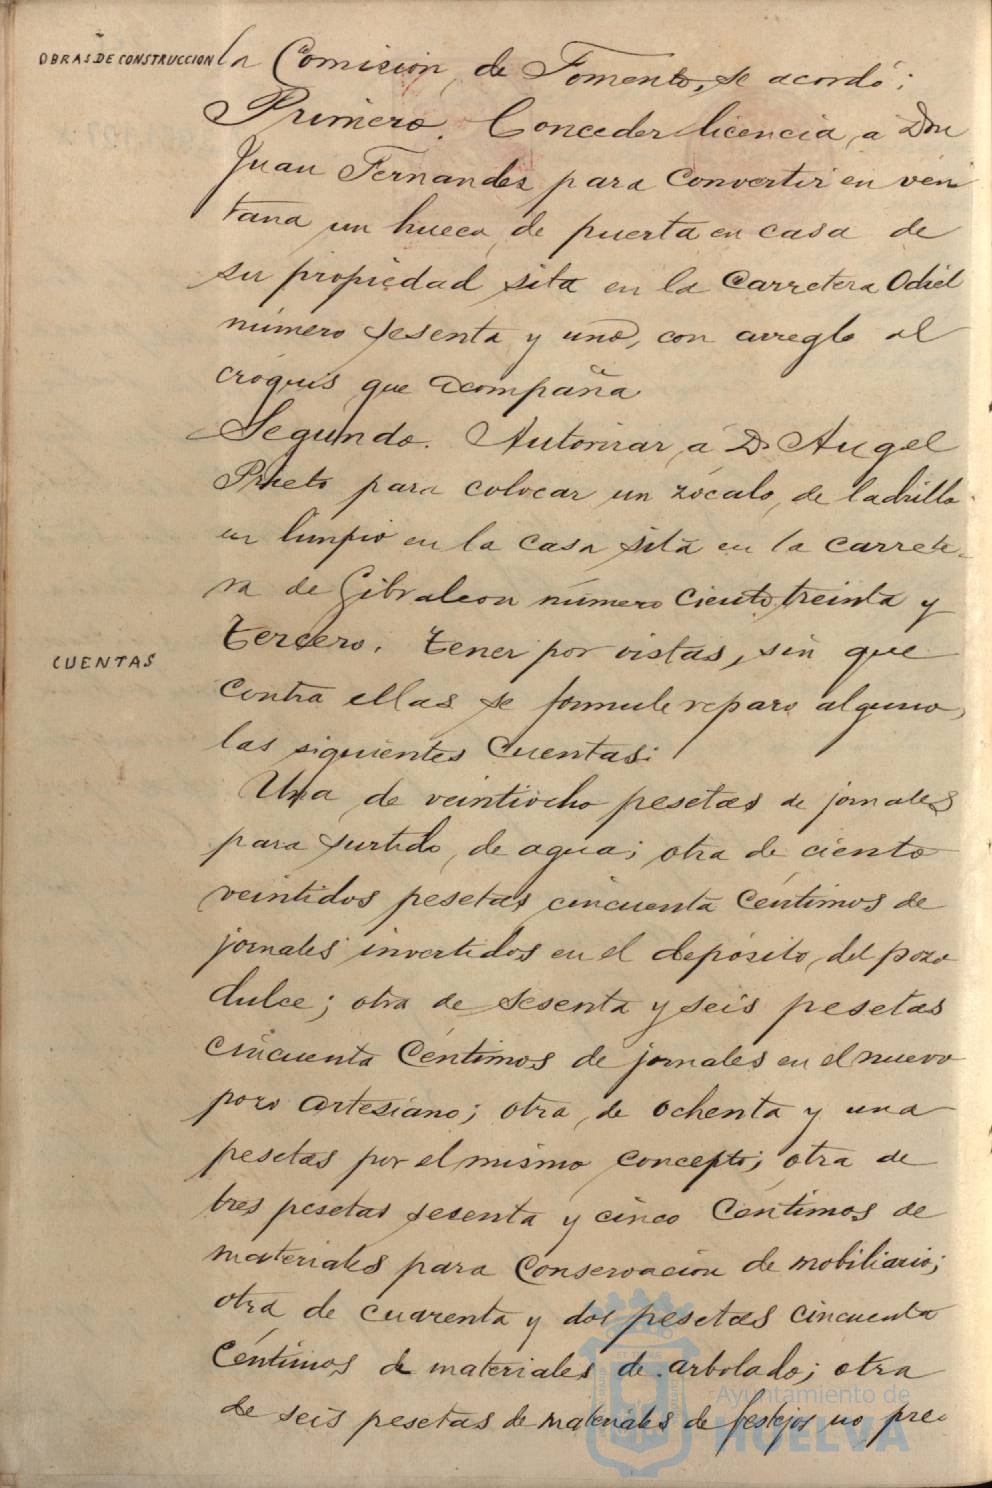 OBRAS DE CONSTRUCCION
la Comision, de Fomento, se acordó:
Primero. Conceder licencia, a Don
Juan Fernandez para convertir en ven-
tana un hueco, de puerta en casa de
su propiedad sita en la Carretera Odiel
número sesenta y uno, con arreglo al
cróquis que acompaña
Segundo. Autorizar, a Dn Angel
Prieto para colocar un zócalo, de ladrillo
en limpio en la casa sita en la carrete-
ra de Gibraleon número ciento treinta y
CUENTAS
tercero. tener por vistas, sin que
contra ellas se formule reparo alguno,
las siguientes cuentas:
Una de veintiocho pesetas de jornales
para surtido, de agua; otra de ciento
veintidos pesetas cincuenta céntimos de
jornales invertidos en el depósito, del pozo
dulce; otra de sesenta y seis pesetas
cincuenta céntimos de jornales en el nuevo
pozo artesiano; otra, de ochenta y una
pesetas por el mismo concepto; otra de
tres pesetas sesenta y cinco céntimos de
materiales para conservación de mobiliario;
otra de cuarenta y dos pesetas cincuenta
céntimos de materiales de arbolado; otra
de seis pesetas de materiales de festejos no pre-
Ayuntamiento de
HUELVA